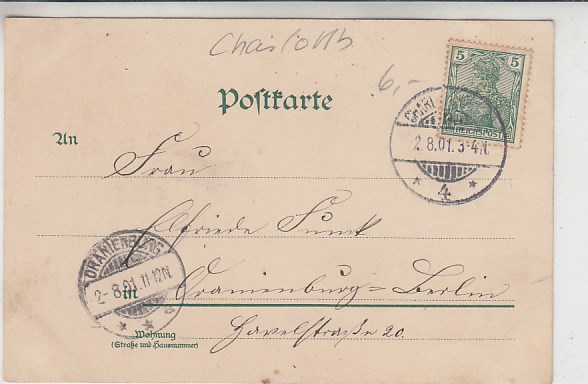 Charlottb
6,-
5 5
REICHSPOST
Postkarte
CHARL
2.8.01.3-4N.
* 4 *
An
Frau
Elfriede Funck
ORANIENBURG
2.8.01.11-12N.
* * b
in Oranienburg=Berlin
Wohnung
(Straße und Hausnummer)
Havelstraße 20.